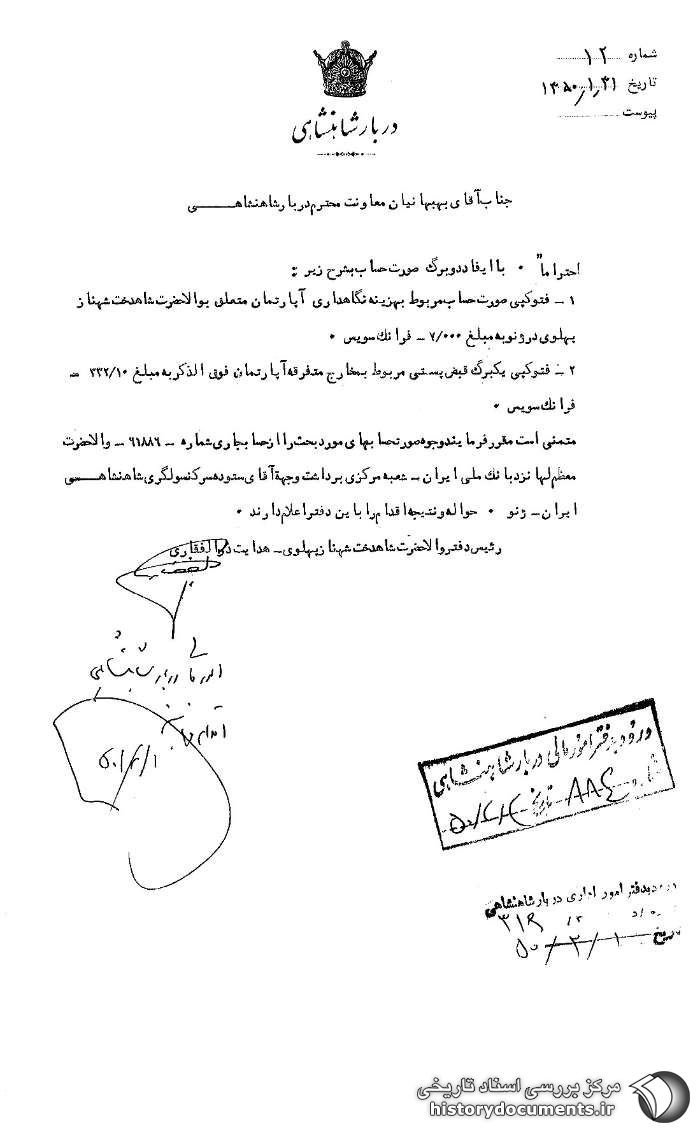 شماره ۱۲
تاریخ ۱۳۵۰/۱/۳۱
پیوست
دربار شاهنشاهی
جناب آقای بهبهانیان معاونت محترم دربار شاهنشاهی
احتراماً ۰ با ایفاد دو برگ صورت حساب بشرح زیر :
۱ ـ فتوکپی صورت حساب مربوط بهزینه نگاهداری آپارتمان متعلق بوالاحضرت شاهدخت شهناز
پهلوی در ژنو به مبلغ ۷/۰۰۰ ـ فرانک سویس ۰
۲ ـ فتوکپی یکبرگ قبض پستی مربوط بمخارج متفرقه آپارتمان فوق الذکر به مبلغ ۳۳۲/۱۰ ـ
فرانک سویس ۰
متمنی است مقرر فرمایند وجوه صورتحسابهای مورد بحث را از حساب جاری شماره ـ ۹۱۸۸۶ ـ والاحضرت
معظم لها نزد بانک ملی ایران ـ شعبه مرکزی برداشت وجهة آقای ستوده سرکنسولگری شاهنشاهی
ایران ـ ژنو ۰ حواله و نتیجه اقدام را باین دفتر اعلام دارند ۰
رئیس دفتر والاحضرت شاهدخت شهناز پهلوی ـ هدایت ذوالفقاری
دربار شاهنشاهی
۵۰/۲/۱
ورود بدفتر امور مالی دربار شاهنشاهی
شماره ۸۸۴ تاریخ
ورود بدفتر امور اداری دربار شاهنشاهی
تاریخ ۵۰/۲/۱
مرکز بررسی اسناد تاریخی
historydocuments.ir